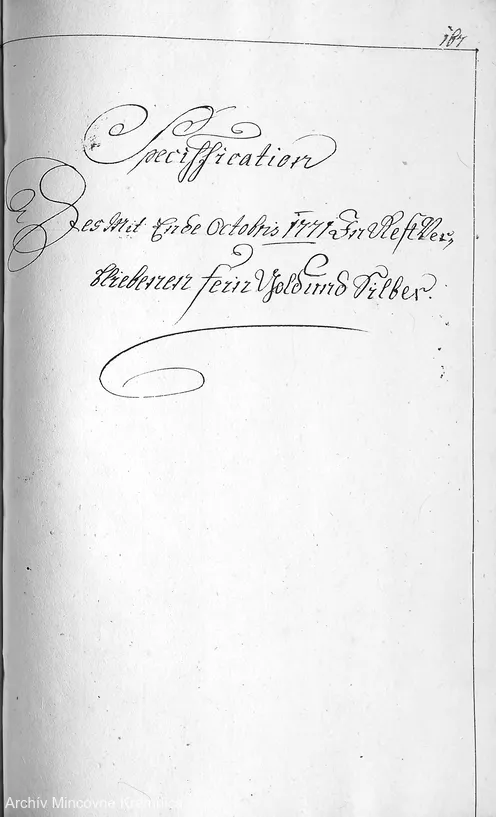 187
Speciffication
Des Mit Ende Octobris 1771 In Rest Ver,
bliebenen fein Gold und Silber.
Archív Mincovne Kremnica